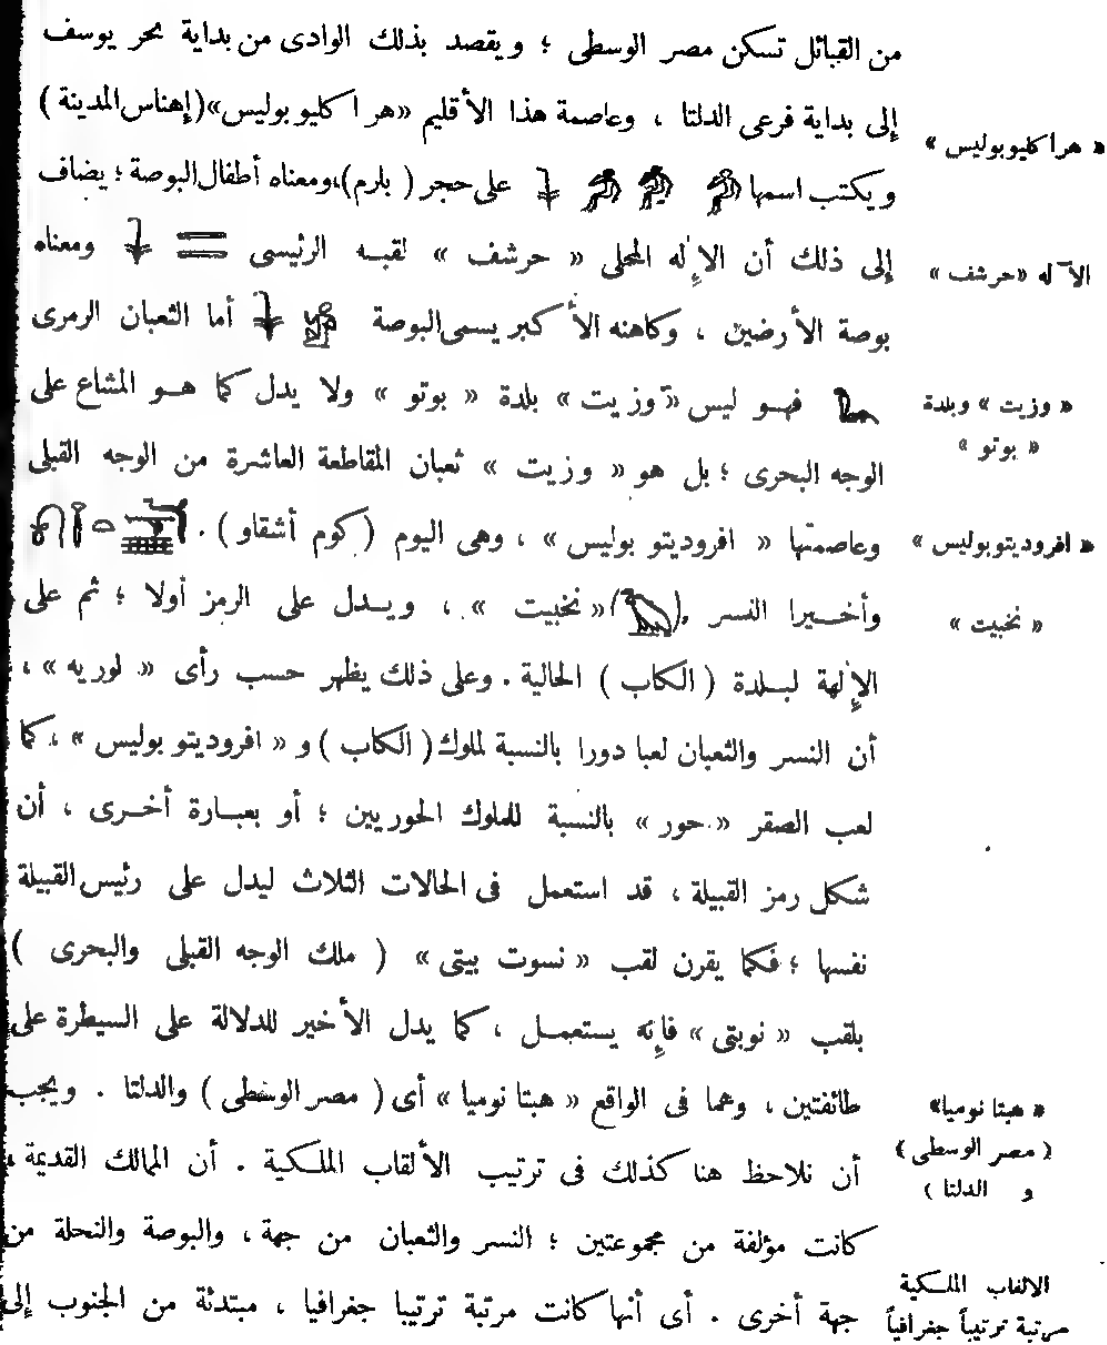 من القبائل تسكن مصر الوسطى ؛ ويقصد بذلك الوادى من بداية بحر يوسف
إلى بداية فرعى الدلتا ، وعاصمة هذا الأقليم «هراكليوبوليس»(إهناس المدينة)
« هراكليوبوليس »
ويكتب اسمها على حجر (بلرم)،ومعناه أطفال البوصة ؛ يضاف
إلى ذلك أن الإله المحلى « حرشف » لقبه الرئيسى ومعناه
الآله «حرشف »
بوصة الأرضين ، وكاهنه الأكبر يسمى البوصة أما الثعبان الرمزى
فهو ليس « وزيت » بلدة « بوتو » ولا يدل كما هو المشاع على
« وزيت » وبلدة
« بوتو »
الوجه البحرى ؛ بل هو « وزيت » ثعبان المقاطعة العاشرة من الوجه القبلى
وعاصمتها « افروديتو بوليس » ، وهى اليوم (كوم أشقاو) .
« افروديتوبوليس »
وأخيرا النسر ( ) « نخبيت » ، ويدل على الرمز أولا ؛ ثم على
« نخبيت »
الإلهة لبلدة ( الكاب ) الحالية . وعلى ذلك يظهر حسب رأى « لوريه » ،
أن النسر والثعبان لعبا دورا بالنسبة لملوك ( الكاب ) و « افروديتو بوليس » ، كما
لعب الصقر « حور » بالنسبة للملوك الحوريين ؛ أو بعبارة أخرى ، أن
شكل رمز القبيلة ، قد استعمل فى الحالات الثلاث ليدل على رئيس القبيلة
نفسها ؛ فكما يقرن لقب « نسوت بيتى » ( ملك الوجه القبلى والبحرى )
بلقب « نوبتى » فإنه يستعمل ، كما يدل الأخير للدلالة على السيطرة على
طائفتين ، وهما فى الواقع « هبتا نوميا » أى ( مصر الوسطى ) والدلتا . ويجب
« هبتا نوميا»
( مصر الوسطى )
و الدلتا )
أن نلاحظ هنا كذلك فى ترتيب الألقاب الملكية . أن الممالك القديمة ،
كانت مؤلفة من مجموعتين ؛ النسر والثعبان من جهة ، والبوصة والنحلة من
جهة أخرى . أى أنها كانت مرتبة ترتيبا جغرافيا ، مبتدئة من الجنوب إلى
الالقاب الملكية
مرتبة ترتيباً جغرافياً